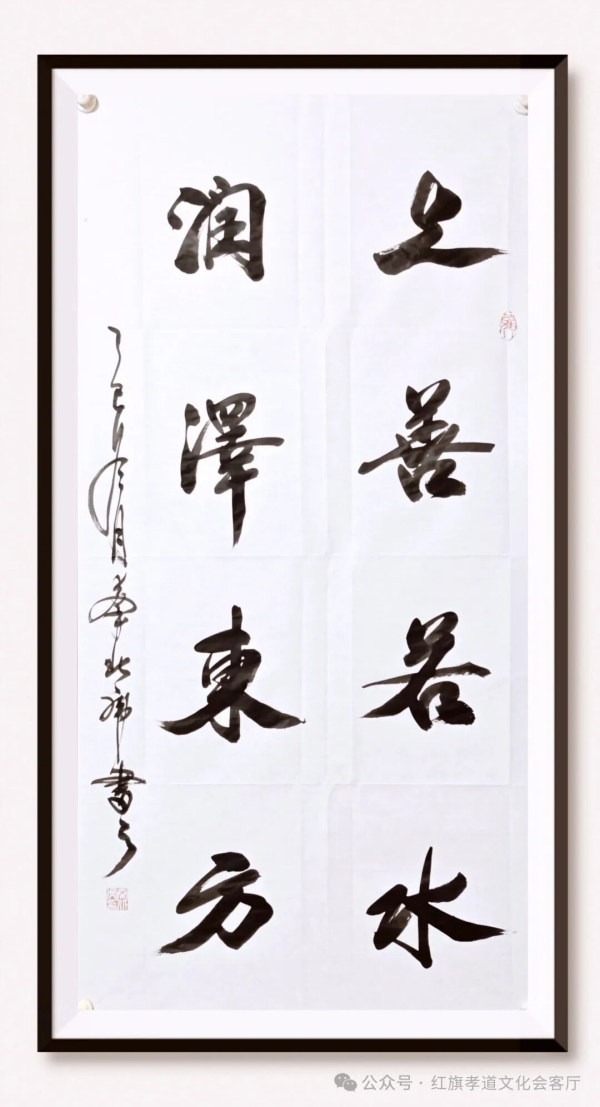 上善若水
润澤東方
乙巳年
月
书
公众号·红旗孝道文化会客厅